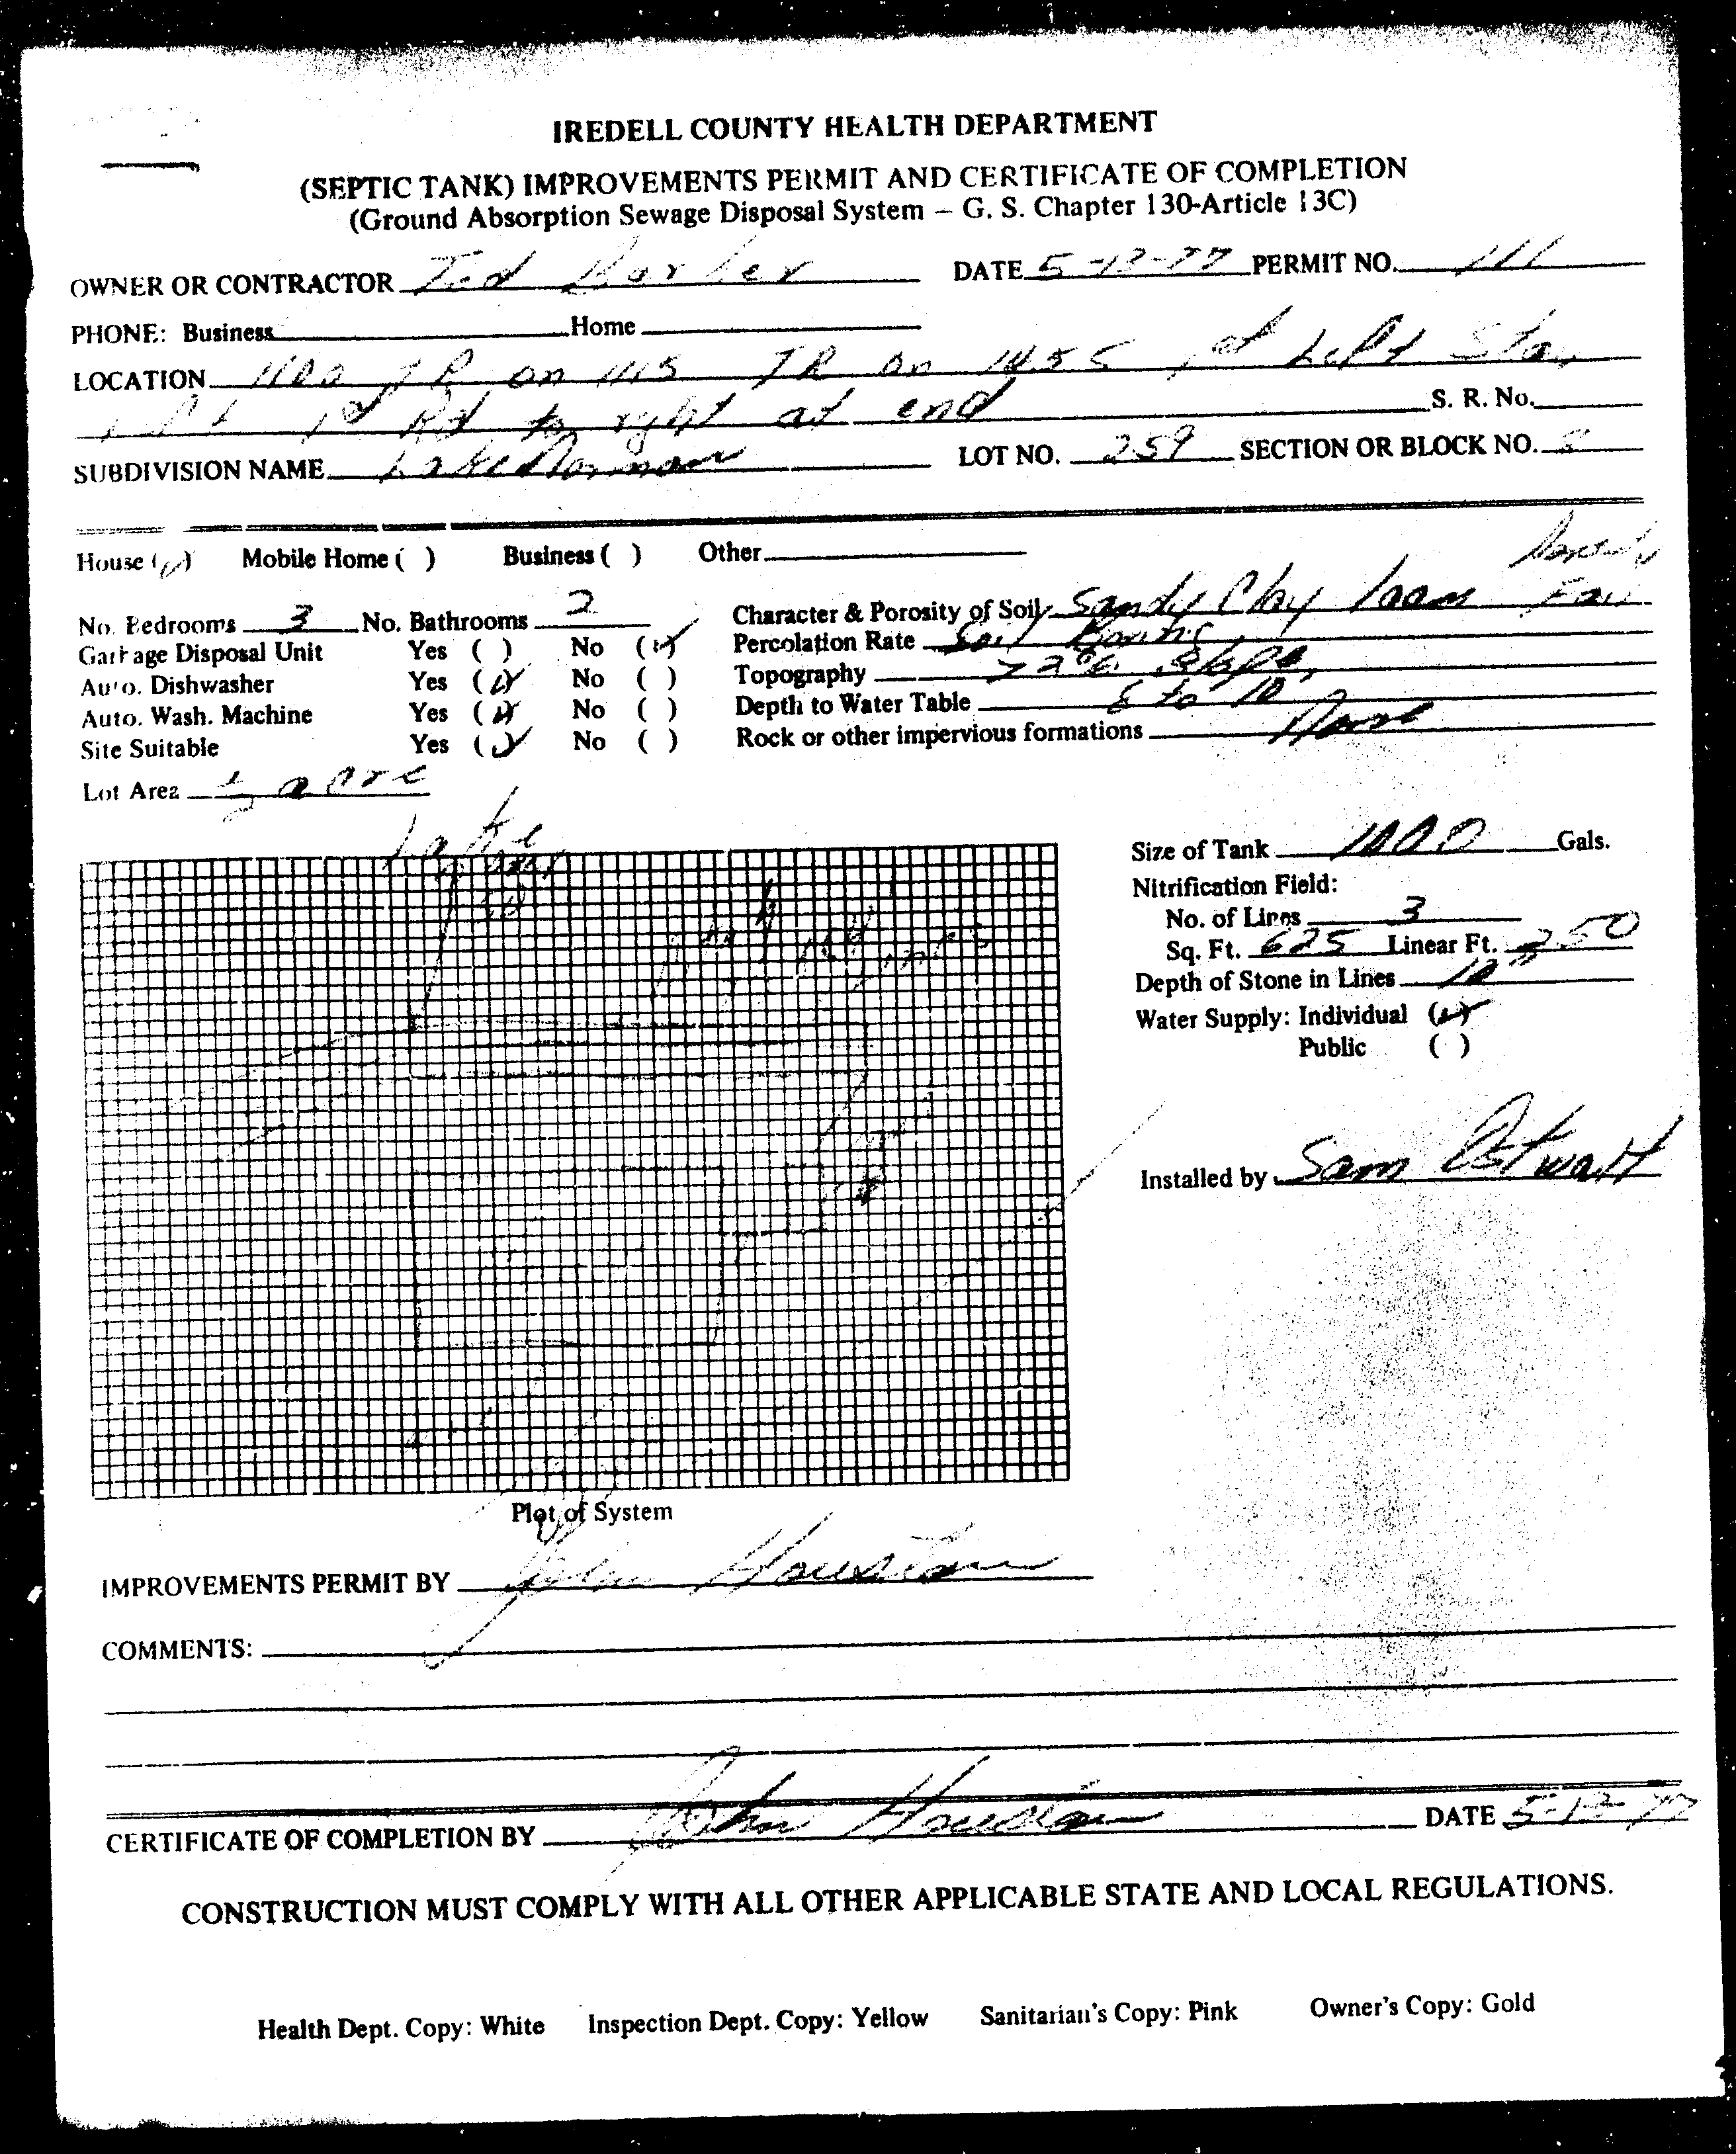 IREDELL COUNTY HEALTH DEPARTMENT
(SEPTIC TANK) IMPROVEMENTS PERMIT AND CERTIFICATE OF COMPLETION
(Ground Absorption Sewage Disposal System – G. S. Chapter 130-Article 13C)
OWNER OR CONTRACTOR Ted DATE 5-13-77 PERMIT NO. 111
PHONE: Business Home
LOCATION TR on 1115 TR on 1455 1st Left
1st Rd to right at end S. R. No.
SUBDIVISION NAME Lake Norman LOT NO. 259 SECTION OR BLOCK NO.
House (✓) Mobile Home ( ) Business ( ) Other
No. Bedrooms 3 No. Bathrooms 2 Character & Porosity of Soil Sandy Clay loam Fair
Garbage Disposal Unit Yes ( ) No (✓) Percolation Rate Soil Boring
Auto. Dishwasher Yes (✓) No ( ) Topography >2% slope
Auto. Wash. Machine Yes (✓) No ( ) Depth to Water Table 8 to 10
Site Suitable Yes (✓) No ( ) Rock or other impervious formations None
Lot Area ½ acre
Lake
Size of Tank 1000 Gals.
Nitrification Field:
No. of Lines 3
Sq. Ft. 625 Linear Ft. 250
Depth of Stone in Lines 10"
Water Supply: Individual (✓)
Public ( )
Installed by Sam Ostwalt
Plot of System
IMPROVEMENTS PERMIT BY John Houston
COMMENTS:
CERTIFICATE OF COMPLETION BY John Houston DATE 5-13-77
CONSTRUCTION MUST COMPLY WITH ALL OTHER APPLICABLE STATE AND LOCAL REGULATIONS.
Health Dept. Copy: White Inspection Dept. Copy: Yellow Sanitarian's Copy: Pink Owner's Copy: Gold